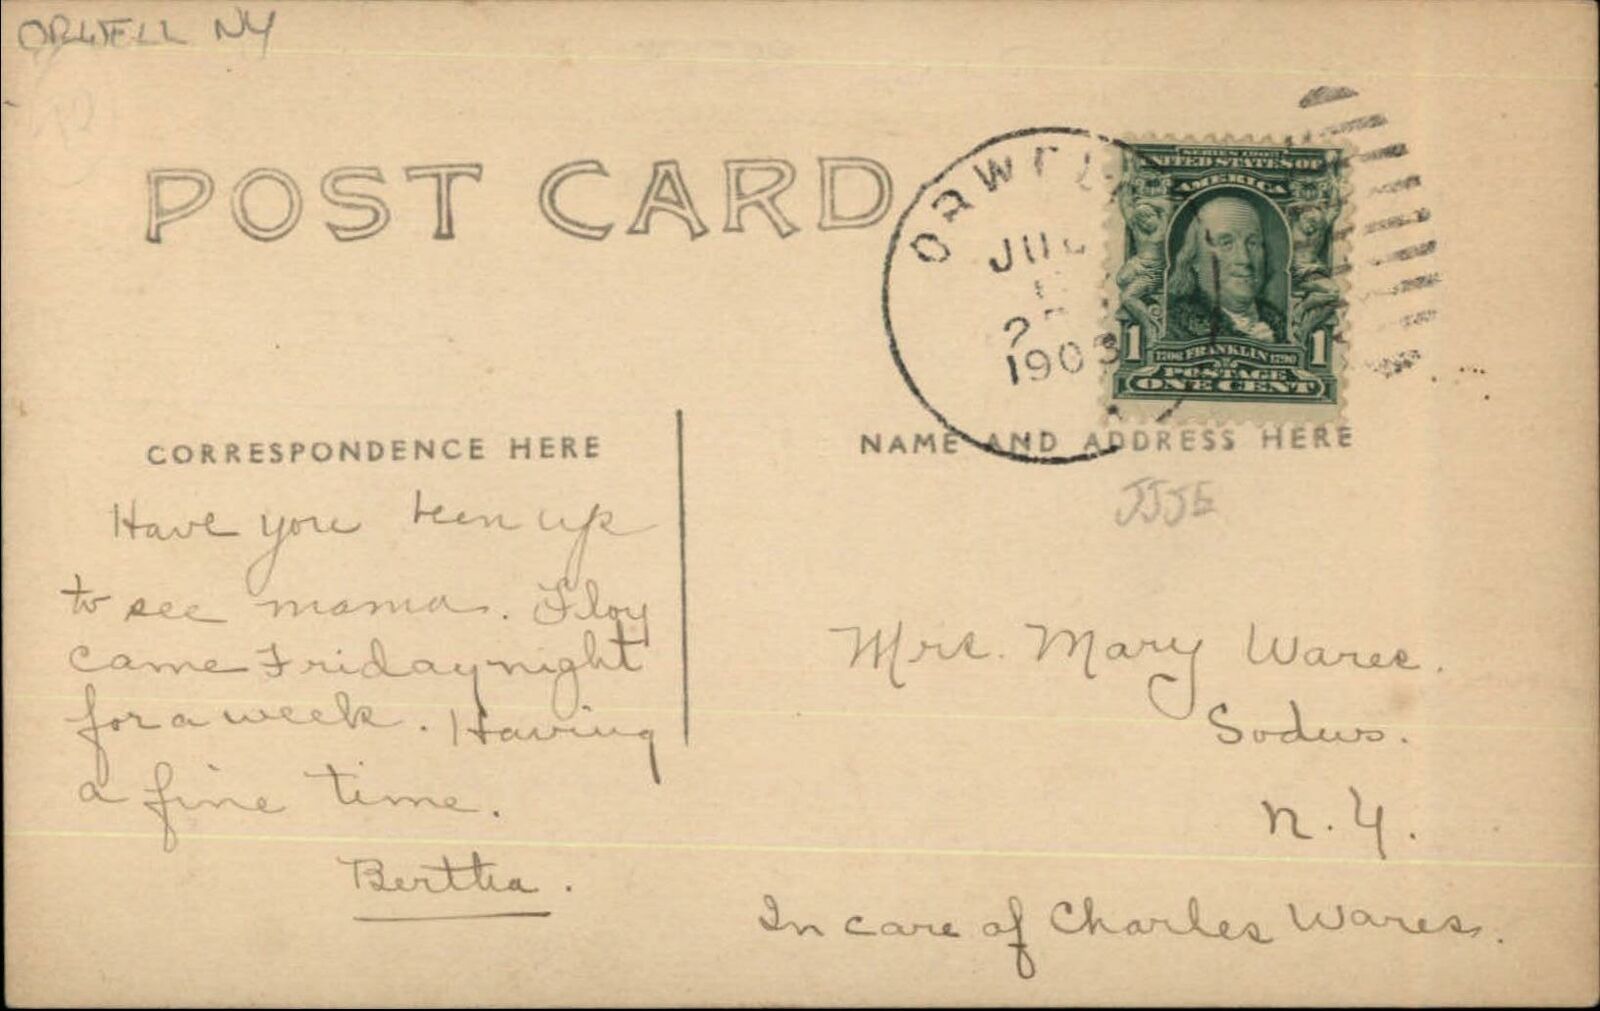 ORWELL NY
POST CARD
ORWELL
JUL
1908
SERIES 1902
UNITED STATES OF
AMERICA
1 1
1706 FRANKLIN 1790
POSTAGE
ONE CENT
CORRESPONDENCE HERE
NAME AND ADDRESS HERE
Have you been up
to see mama. Floy
came Friday night
for a week. Having
a fine time.
Bertha.
Mrs. Mary Wares.
Sodus.
N.Y.
In care of Charles Wares.